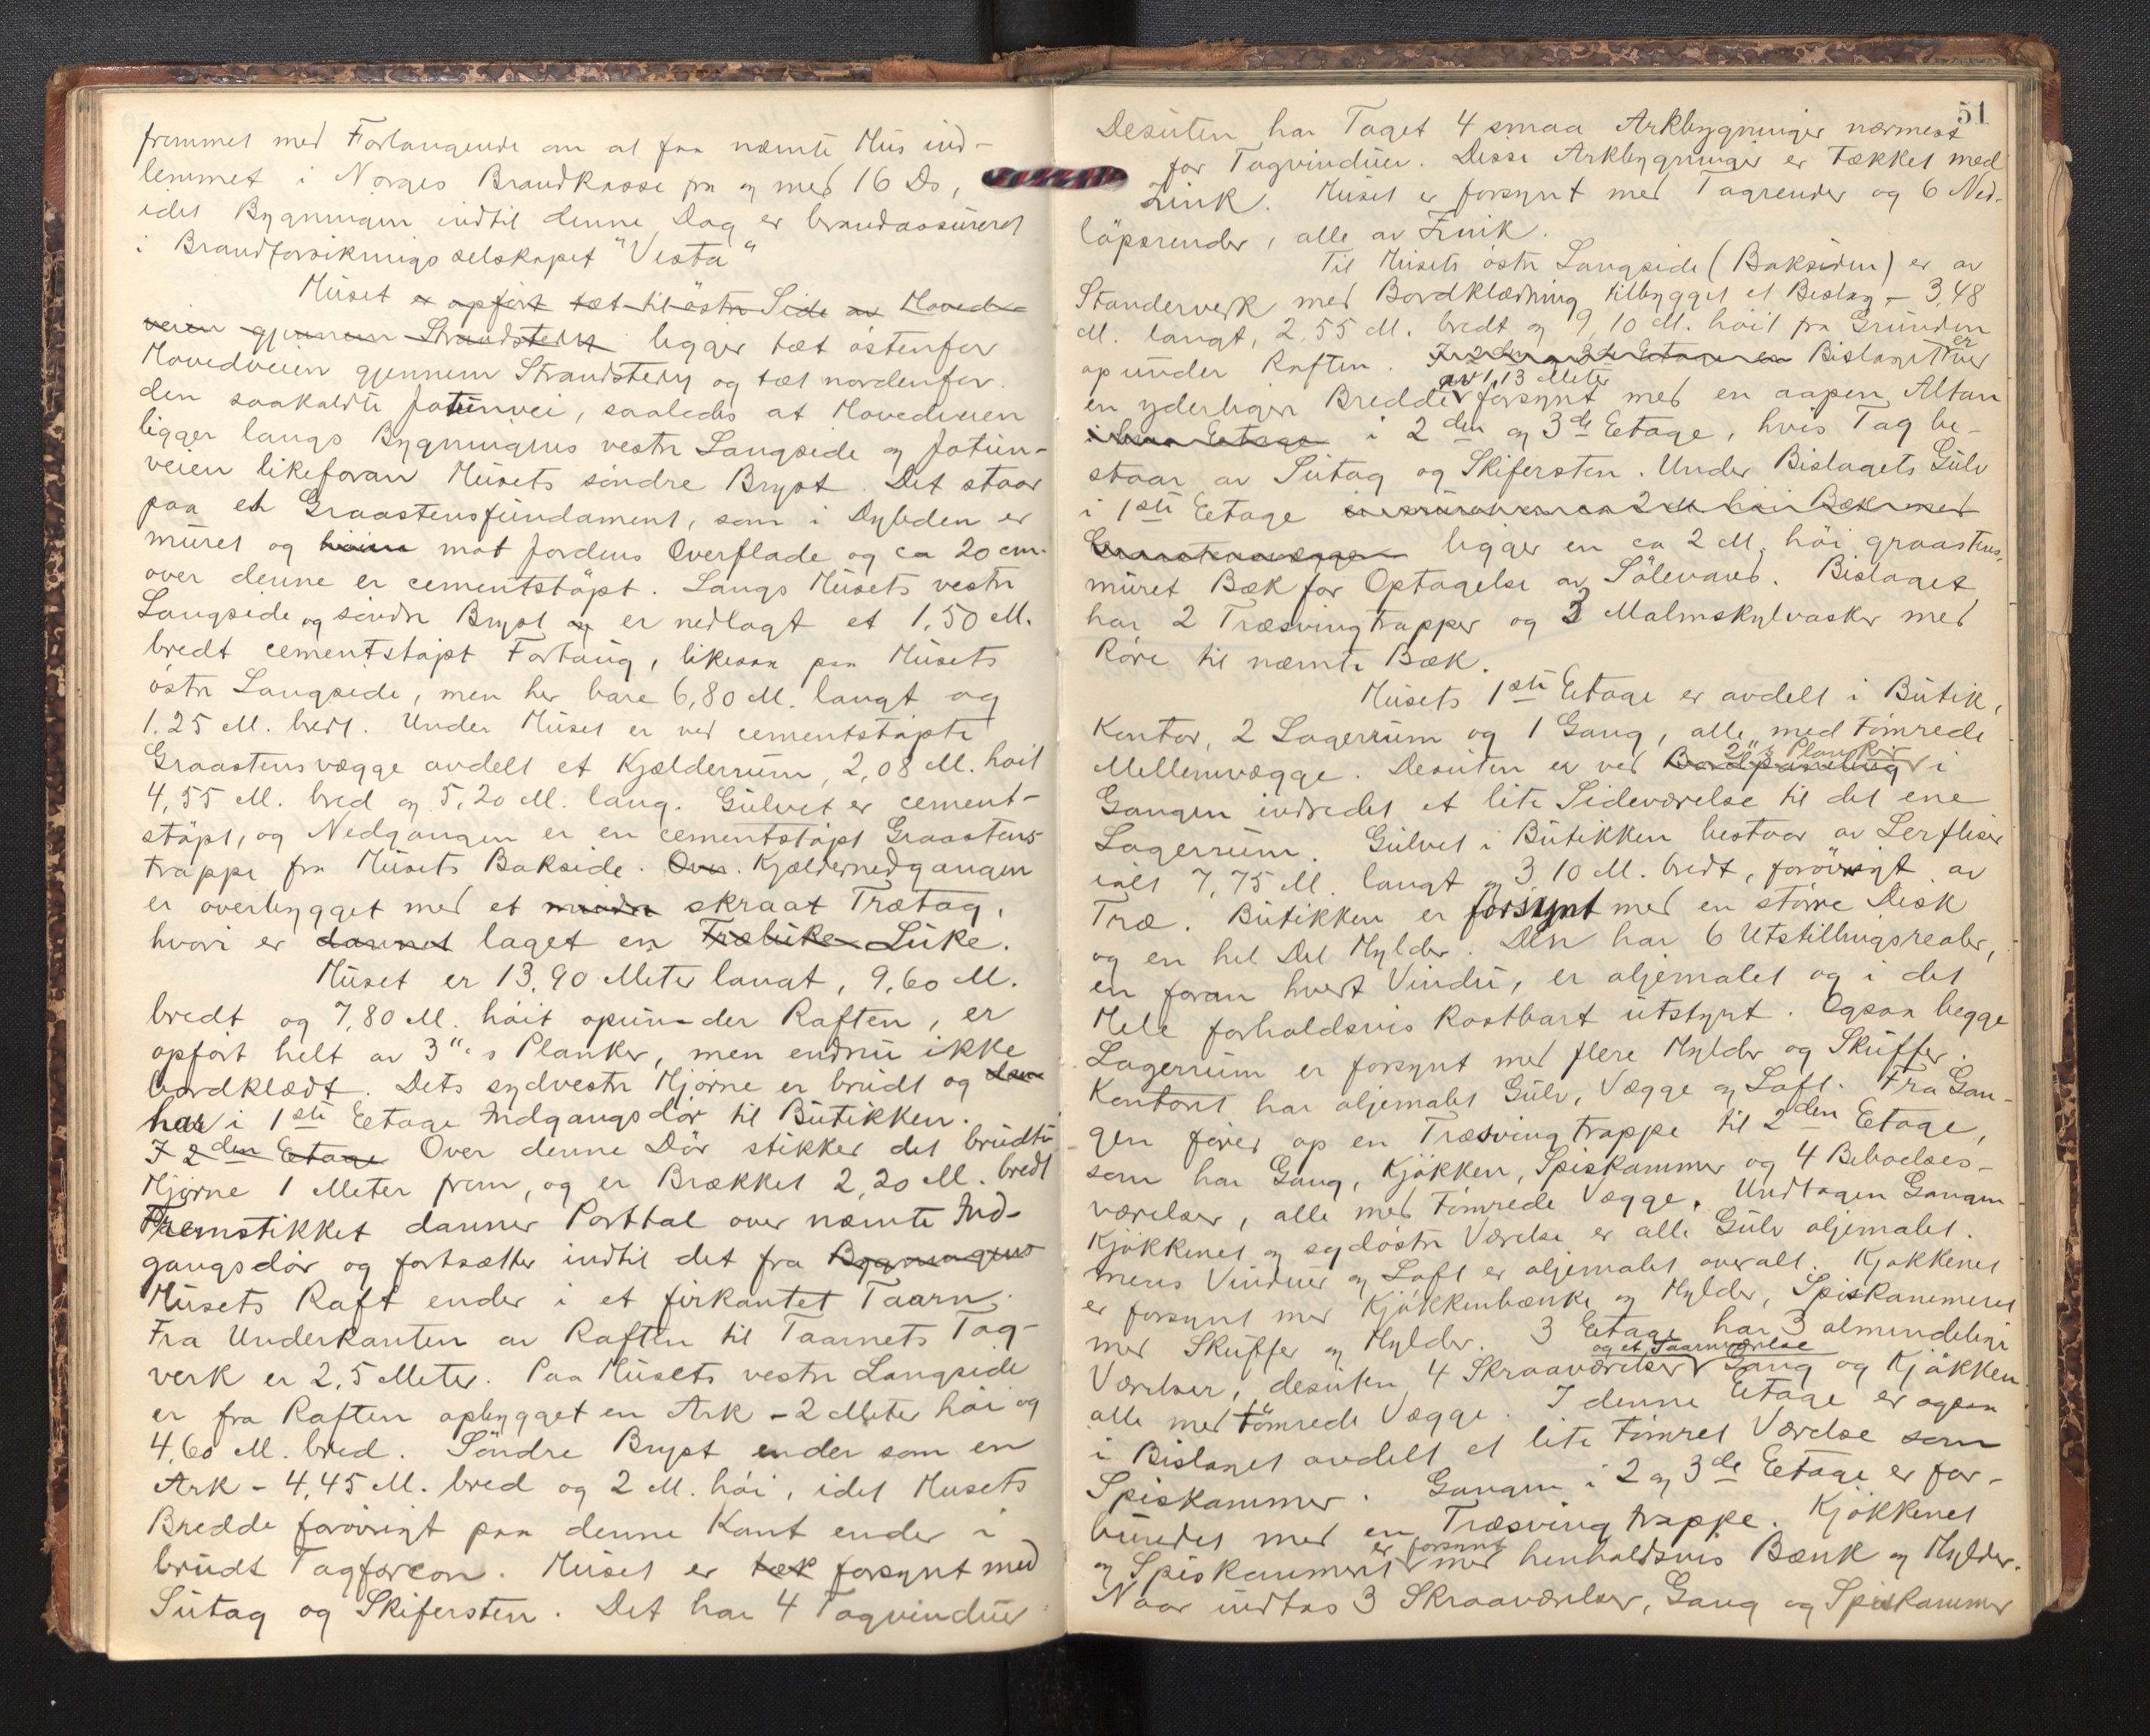 fremmet med Forlangende om at faa nævnte Hus ind-
lemmet i Norges Brandkasse fra og med 16 Ds,
idet Bygningen indtil denne Dag er brandassureret
i Brandforsikringsselskapet "Vesta"
Huset er opført tæt til östre Side av Hoved-
veien gjennem Strandstedet ligger tæt östenfor
Hovedveien gjennem Strandstedet og tæt nordenfor
den saakaldte Jotunvei, saaledes at Hovedveien
ligger langs Bygningens vestre Langside og Jotun-
veien likeforan Husets söndre Bryst. Det staar
paa et Graastensfundament, som i Dybden er
muret og mot Jordens Overflade og ca 20 cm.
over denne er cementstöpt. Langs Husets vestre
Langside og söndre Bryst og er nedlagt et 1,50 M.
bredt cementstöpt Fortaug, likesaa paa Husets
östre Langside, men her bare 6,80 M. langt og
1.25 M. bredt. Under Huset er ved cementstöpte
Graastensvægge avdelt et Kjælderrum, 2,08 M. höit
4,55 M. bred og 5,20 M. lang. Gulvet er cement-
stöpt, og Nedgangen er en cementstöpt Graastens-
trappe fra Husets Bakside. Over. Kjældernedgangen
er overbygget med et mindre skraat Trætag,
hvori er dannet laget en Træluke Luke.
Huset er 13,90 Meter langt, 9,60 M.
bredt og 7,80 M. höit opunder Raften, er
opfört helt av 3"s Planker, men endnu ikke
bordklædt. Dets sydvestre Hjørne er brudt og
har i 1ste Etage Indgangsdör til Butikken.
I 2den Etage Over denne Dör stikker det brudte
Hjørne 1 Meter frem, og er Brækket 2,20 M. bredt
Fremstikket danner Portal over nævnte Ind-
gangsdör og fortsætter indtil det fra Bygningens
Husets Raft ender i et firkantet Taarn.
Fra Underkanten av Raften til Taarnets Tag-
verk er 2,5 Meter. Paa Husets vestre Langside
er fra Raften opbygget en Ark - 2 Meter höi og
4,60 M. bred. Söndre Bryst ender som en
Ark - 4,45 M. bred og 2 M. höi, idet Husets
Bredde forövrigt paa denne Kant ender i
brudt Tagfacon. Huset er tæk forsynt med
Sutag og Skifersten. Det har 4 Tagvinduer
51
Desuten har Taget 4 smaa Arkbygninger nærmest
for Tagvinduer. Disse Arkbygninger er tækket med
Zink. Huset er forsynt med Tagrender og 6 Ned-
löpsrender, alle av Zink.
Til Husets östre Langside (Baksiden) er av
Standerverk med Bordklædning tilbygget et Bislag - 3,48
M. langt, 2,55 M. bredt og 9,10 M. höit fra Grunden
opunder Raften. I 2den og 3de Etage er Bislaget er
en yderligere Bredde av 1,13 Meter forsynt med en aapen Altan
Etage i 2den og 3de Etage, hvis Tag be-
staar av Sutag og Skifersten. Under Bislagets Gulv
i 1ste Etage 2 M höi Bæk med
ligger en ca 2 M. höi graastens-
muret Bæk for Optagelse av Sölevand. Bislaget
har 2 Træsvingtrapper og 3 Malmskylvasker med
Röre til nævnte Bæk.
Husets 1ste Etage er avdelt i Butik,
Kontor, 2 Lagerrum og 1 Gang, alle med tömrede
Mellemvægge. Desuten er ved Bordpaneling 2"s Planker i
Gangen indredet et lite Sideværelse til det ene
Lagerrum. Gulvet i Butikken bestaar av Lerfliser
ialt 7,75 M. langt og 3 10 M. bredt, forövrigt av
Træ. Butikken er forsynt med en större Disk
og en hel Del Hylder. Den har 6 Utstillingsrealer,
en foran hvert Vindu, er oljemalet og i det
Hele forholdsvis kostbart utstyrt. Ogsaa begge
Lagerrum er forsynt med flere Hylder og Skuffer.
Kontoret har oljemalet Gulv, Vægge og Loft. Fra Gan-
gen förer op en Træsvingtrappe til 2den Etage,
som har Gang, Kjökken, Spiskammer og 4 Beboelses-
værelser, alle med tömrede Vægge. Undtagen Gangen
Kjökkenet og sydöstre Værelse er alle Gulv oljemalet.
mens Vinduer og Loft er oljemalet overalt. Kjøkkenet
er forsynt med Kjökkenbænke og Hylder, Spiskammeret
med Skuffer og Hylder. 3 Etage har 3 almindelige
Værelser, desuten 4 Skraaværelser og et Taarnværelse Gang og Kjökken
alle med tömrede Vægge. I denne Etage er ogsaa
i Bislaget avdelt et lite tömret Værelse som
Spiskammer. Gangen i 2 og 3de Etage er for-
bundet med en Træsvingtrappe. Kjökkenet
og Spiskammeret er forsynt med henholdsvis Bænk og Hylder.
Naar undtas 3 Skraaværelser, Gang og Spiskammer